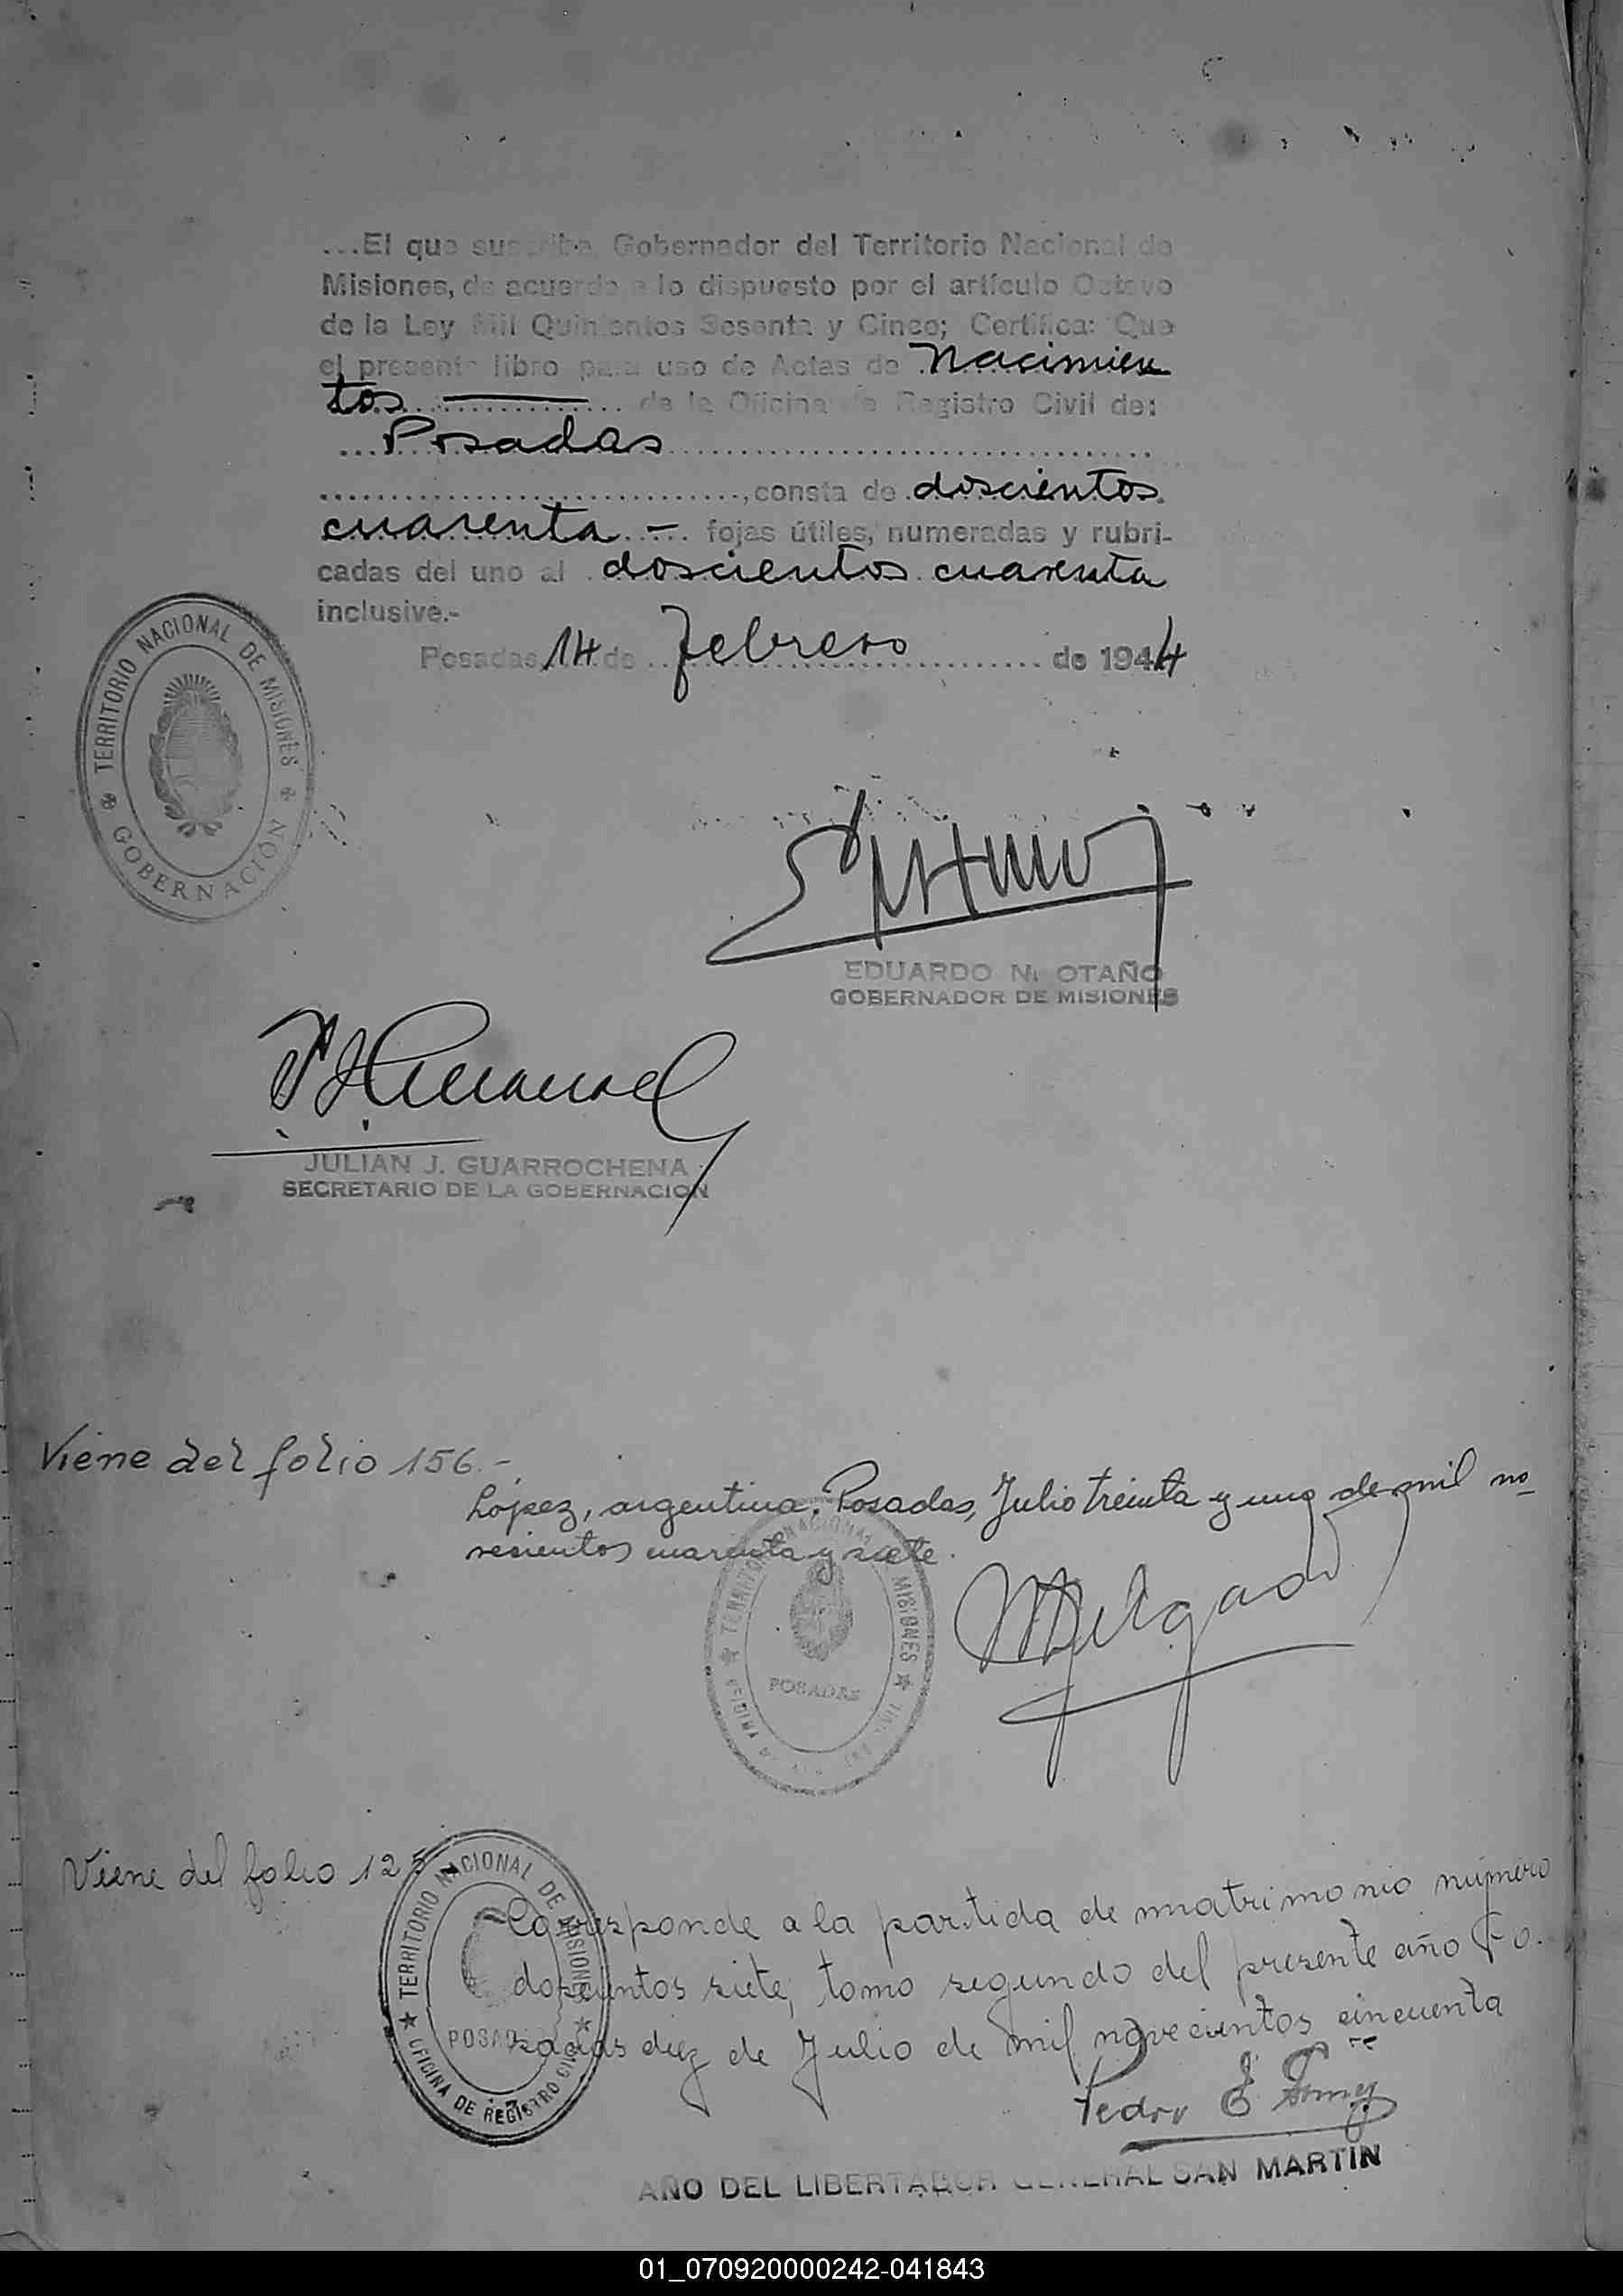 ...El que suscribe, Gobernador del Territorio Nacional de
Misiones, de acuerdo a lo dispuesto por el artículo Octavo
de la Ley Mil Quinientos Sesenta y Cinco; Certifica: Que
el presente libro para uso de Actas de Nacimien
tos ——— de la Oficina de Registro Civil de:
...Posadas
, consta de doscientos
cuarenta.- fojas útiles, numeradas y rubri-
cadas del uno al doscientos cuarenta
inclusive.-
Posadas 14 de febrero de 1944
TERRITORIO NACIONAL DE MISIONES
GOBERNACIÓN
EDUARDO N. OTAÑO
GOBERNADOR DE MISIONES
JULIAN J. GUARROCHENA
SECRETARIO DE LA GOBERNACION
Viene del folio 156.-
López, argentina. Posadas, Julio treinta y uno de mil no_
vecientos cuarenta y siete.
TERRITORIO NACIONAL MISIONES
POSADAS
OFICINA
MDelgado
Viene del folio 125
Corresponde a la partida de matrimonio número
doscientos siete, tomo segundo del presente año Po.
sadas diez de Julio de mil novecientos cincuenta
TERRITORIO NACIONAL DE MISIONES
POSADAS
OFICINA DE REGISTRO CIVIL
Pedro E Gomez
AÑO DEL LIBERTADOR GENERAL SAN MARTIN
01_070920000242-041843